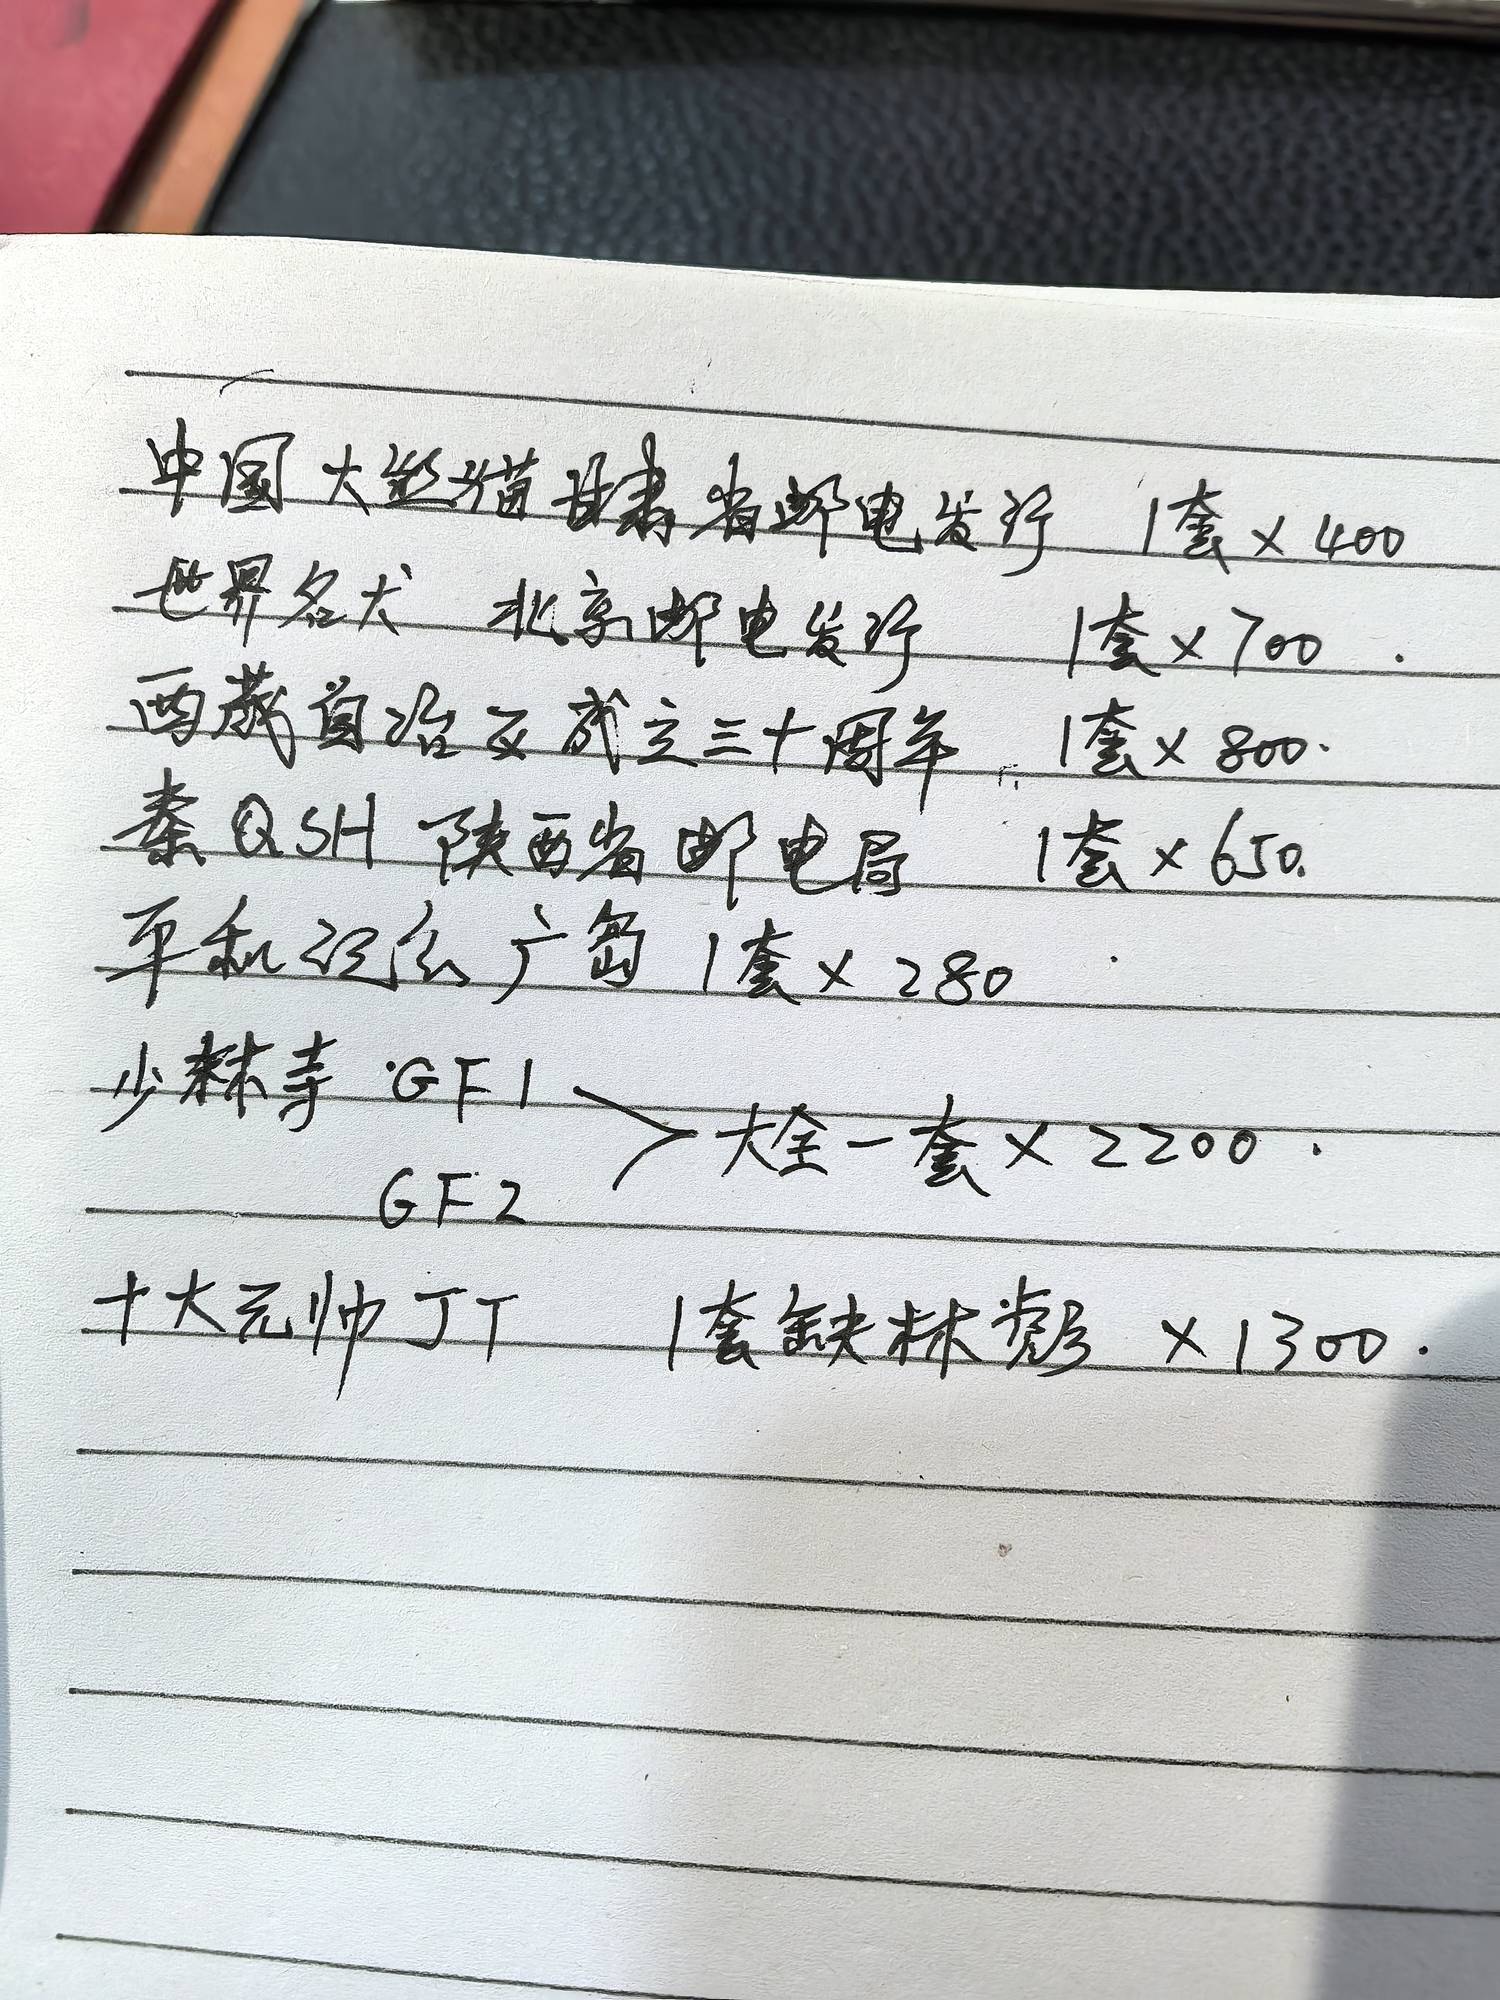 中国大熊猫甘肃省邮电发行 1套×400
世界名犬 北京邮电发行 1套×700.
西藏自治区成立三十周年 1套×800.
秦QSH 陕西省邮电局 1套×650.
平和记念广岛 1套×280
少林寺 GF1
大全一套×2200.
GF2
十大元帅JT 1套缺林彪 ×1300.